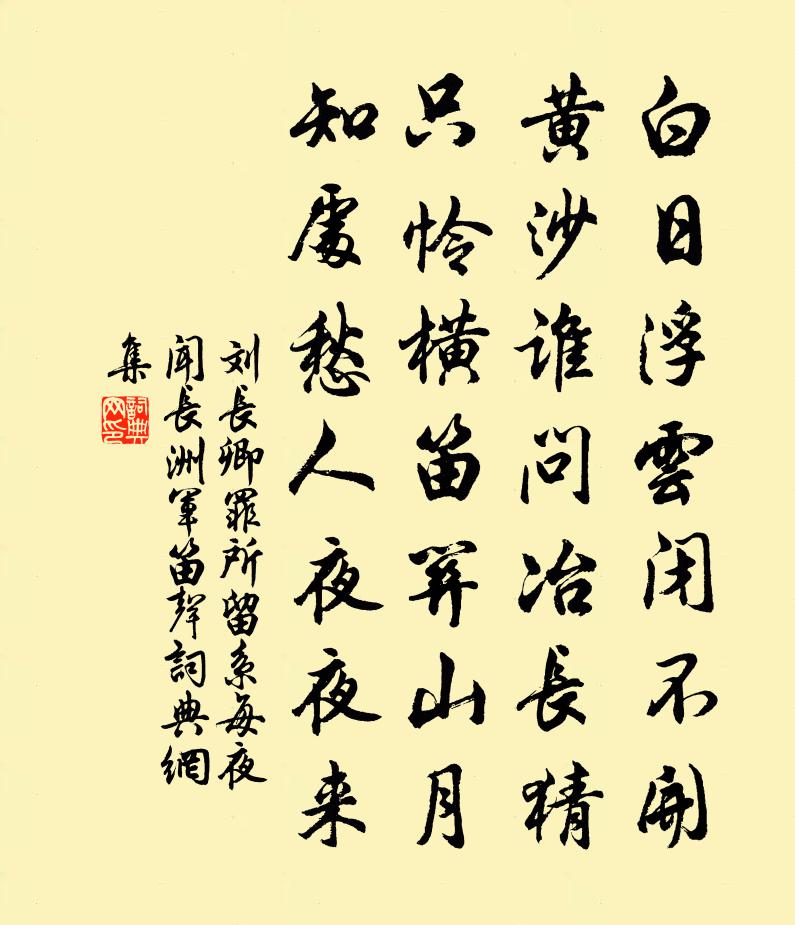 白日浮雲闭不開
黄沙谁问冶長猜
只怜横笛关山月
知處愁人夜夜来
刘長卿罪所留系每夜
聞長洲軍笛聲詞典網
集
詞典
网印